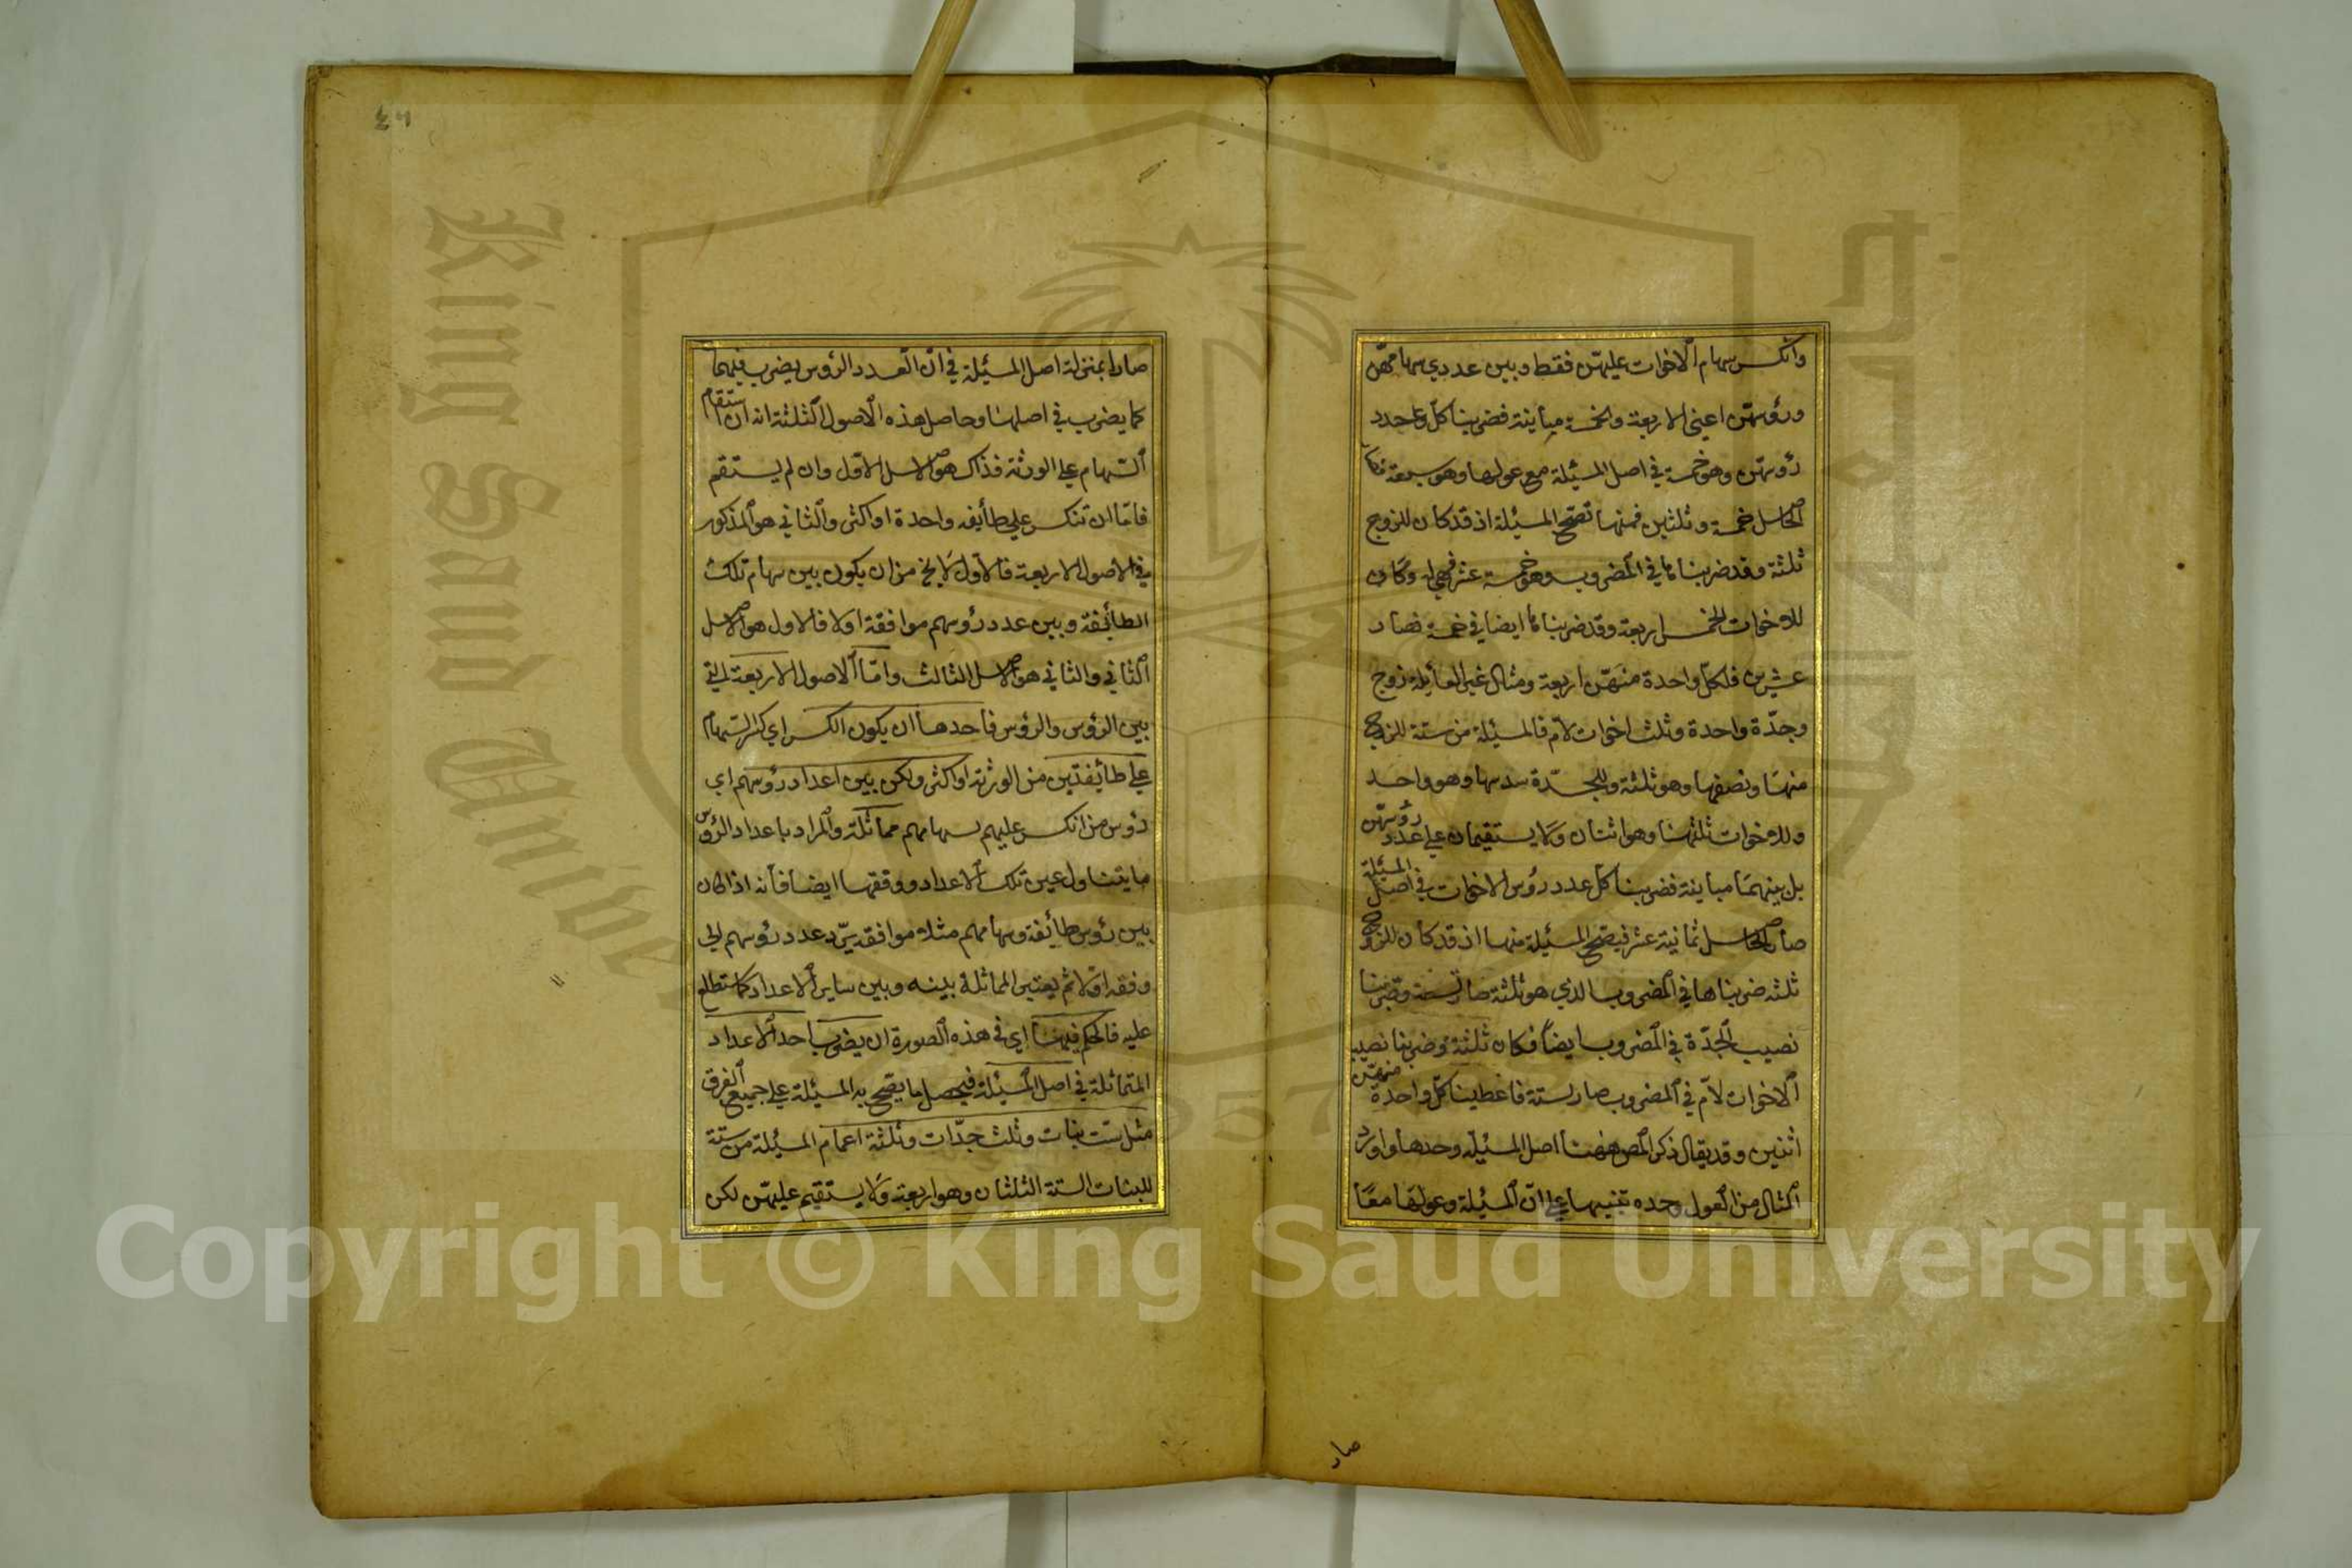 وانكسر سهام الاخوات عليهن فقط وبين عددي سهامهن
ورؤسهن اعني الاربعة والخمسة مباينة فضربنا كل عدد
رؤسهن وهو خمسة في اصل المسئلة مع عولها وهو سبعة فكا
الحاصل خمسة وثلثين فمنها تصح المسئلة اذ قد كان للزوج
ثلثة وقد ضربناها في المضروب وهو خمسة عشر فهي له وكان
للاخوات الخمس اربعة وقد ضربناها ايضا في خمسة فصار
عشرين فلكل واحدة منهن اربعة ومثال غير العايلة زوج
وجدة واحدة وثلث اخوات لام فالمسئلة من ستة للزوج
منها ونصفها وهو ثلثة وللجدة سدسها وهو واحد
وللاخوات ثلثهنا وهو اثنان ولا يستقيمان علي عدد رؤسهن
بل بينهما مباينة فضربنا كل عدد رؤس الاخوات في اصل المسئلة
صار الحاصل ثمانية عشر فيصح المسئلة منها اذ قد كان للزوج
ثلثه ضربناها في المضروب الذي هو ثلثة صار تسعة وضربنا
نصيب الجدة في المضروب ايضا فكان ثلثة وضربنا نصيب
الاخوات لام في المضروب صار ستة فاعطينا كل واحدة منهن
اثنين وقد يقال ذكر المص ههنا اصل المسئلة وحدها واورد
المثال من العول وحده تنبيها علي ان المسئلة وعولها معا
صار
٤٦
صارا بمنزلة اصل المسئلة في ان العدد الرؤس يضرب فيهما
كما يضرب في اصلهنا وحاصل هذه الاصول الثلثة انه ان استقام
السهام علي الورثة فذاك هو الاصل الاول وان لم يستقم
فاما ان تنكسر علي طايفه واحدة او اكثر والثاني هو المذكور
في الاصول الاربعة فالاول لا يخ من ان يكون بين سهام تلك
الطايفة وبين عدد رؤسهم موافقة اولا فالاول هو الاصل
الثاني والثاني هو الاصل الثالث واما الاصول الاربعة التي
بين الرؤس والرؤس فاحدها ان يكون الكسر اي كسر السهام
علي طايفتين من الورثة او اكثر ولكن بين اعداد رؤسهم اي
رؤس من انكسر عليهم سهامهم مماثلة والمراد باعداد الرؤس
ما يتناول عين تلك الاعداد ووفقها ايضا فانه اذا كان
بين رؤس طايفة وسهامهم مثلا موافقه يرد عدد رؤسهم الي
وفقه اولا ثم يعتبر المماثلة بينه وبين ساير الاعداد كما ستطلع
عليه فالحكم فيهنا اي في هذه الصورة ان يضرب احد الاعداد
المتماثلة في اصل المسئلة فيحصل ما يصح به المسئلة علي جميع الفرق
مثل ست بنات وثلث جدات وثلثة اعمام المسئلة من ستة
للبنات الستة الثلثان وهو اربعة ولا يستقيم عليهن لكن
King Saud Unive
1957
Copyright © King Saud University